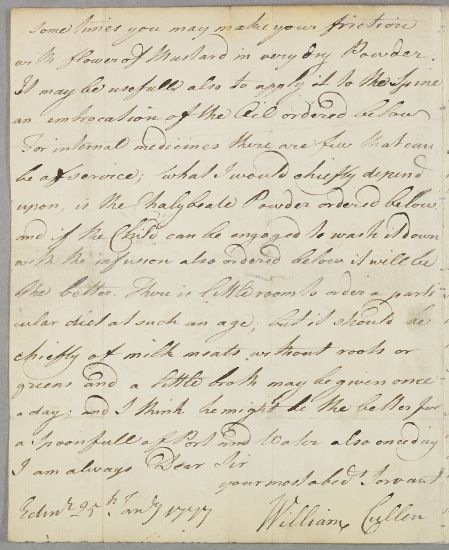 Sometimes you may make your friction
with flower of Mustard in very dry Powder.
It may be usefull also to apply it to the Spine
an embrocation of the Oil ordered below
For internal medicines there are few that can
be of service; what I would chiefly depend
upon, is the Chalybeate Powder ordered below
and if the Child can be engaged to wash it down
with the infusion also ordered below it will be
the better. There is little room to order a parti
cular diet at such an age, but it should be
chiefly of milk meats without roots or
greens and a little broth may be given once
a day; and I think he might be the better for
a Spoonfull of Port and Water also once a day
I am always Dear Sir
your most obedt. Servant
Edinr. 25th Jany 1777 William Cullen